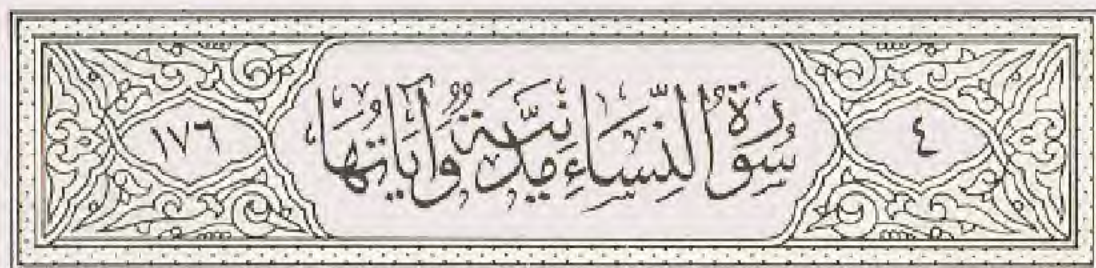 ٤
سُورَةُ النِّسَاءِ مَدَنِيَّةٌ وَآيَاتُهَا
١٧٦